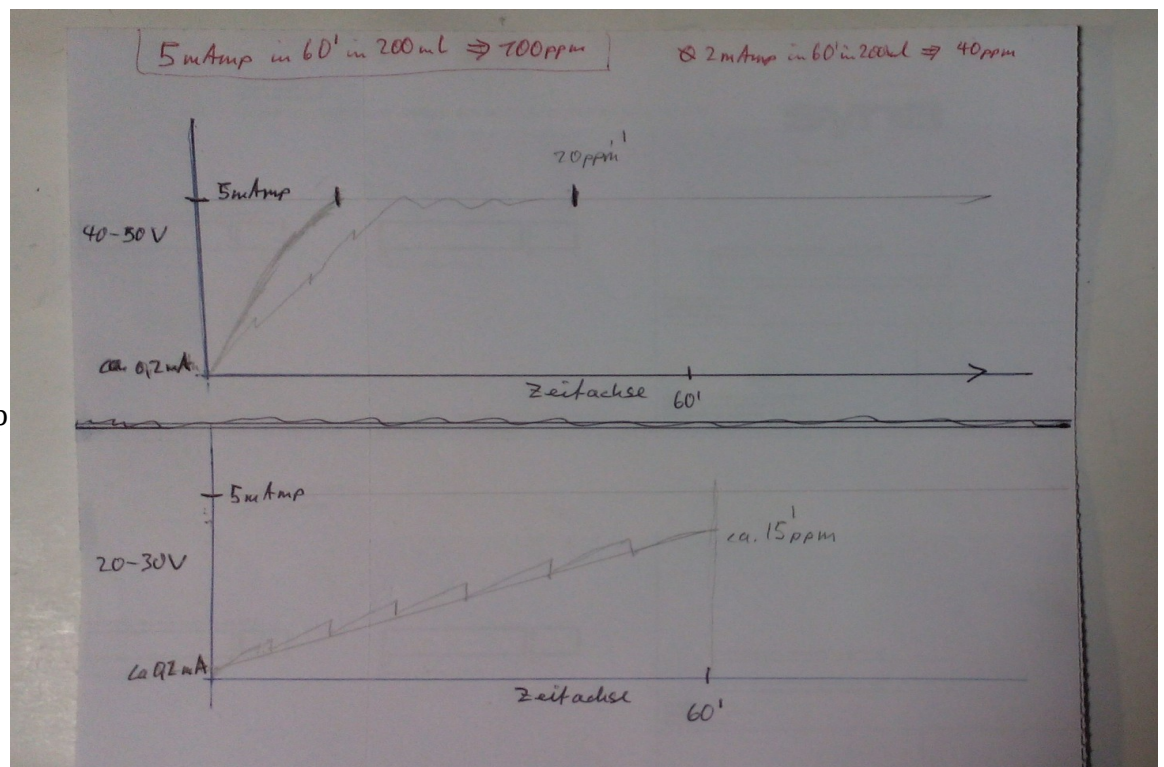 5mAmp in 60' in 200ml ⇒ 100ppm
⌀ 2mAmp in 60' in 200ml ⇒ 40ppm
20ppm'
5mAmp
40-50V
ca. 0,2mA
Zeitachse
60'
5mAmp
ca. 15'ppm
20-30V
ca 0,2mA
Zeitachse
60'